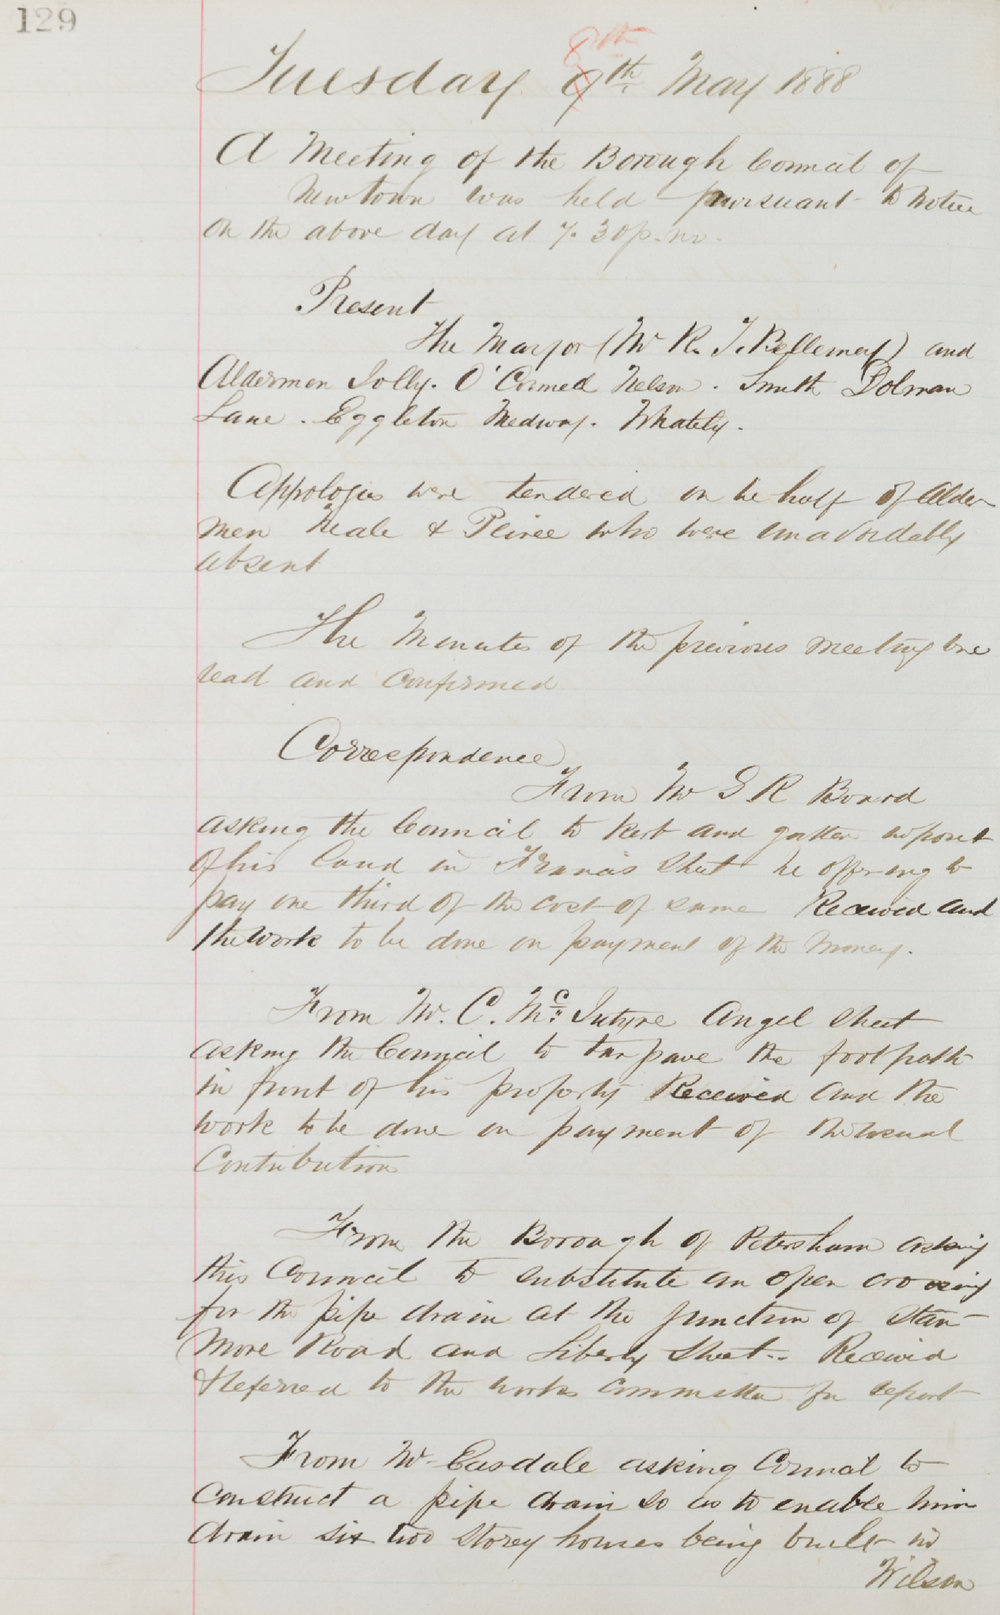 129
8th
Tuesday 9th May 1888
A Meeting of the Borough Council of
Newtown was held pursuant to notice
on the above day at 7.30 p.m.
Present
The Mayor (Mr R. T. Bellemey) and
Aldermen Jolly. O'Connell Nelson. Smith Dolman
Lane. Eggleton Medway. Whately.
Appologies were tendered on behalf of Alder-
men Neale & Peirce who were unavoidably
absent
The Minutes of the previous meeting were
read and confirmed
Correspondence
From Mr S R Board
asking the Council to kerb and gutter in front
of his land in Francis Street he offering to
pay one third of the cost of same Received and
the work to be done on payment of the money.
From Mr. C. McIntyre Angel Street
asking the Council to tar pave the footpath
in front of his property Received and the
work to be done on payment of the usual
Contribution
From the Borough of Petersham asking
this Council to substitute an open crossing
for the pipe drain at the junction of Stan-
more Road and Liberty Street. Received
& referred to the works committee for report
From Mr Easdale asking Council to
construct a pipe drain so as to enable him
drain six two storey houses being built in
Wilson